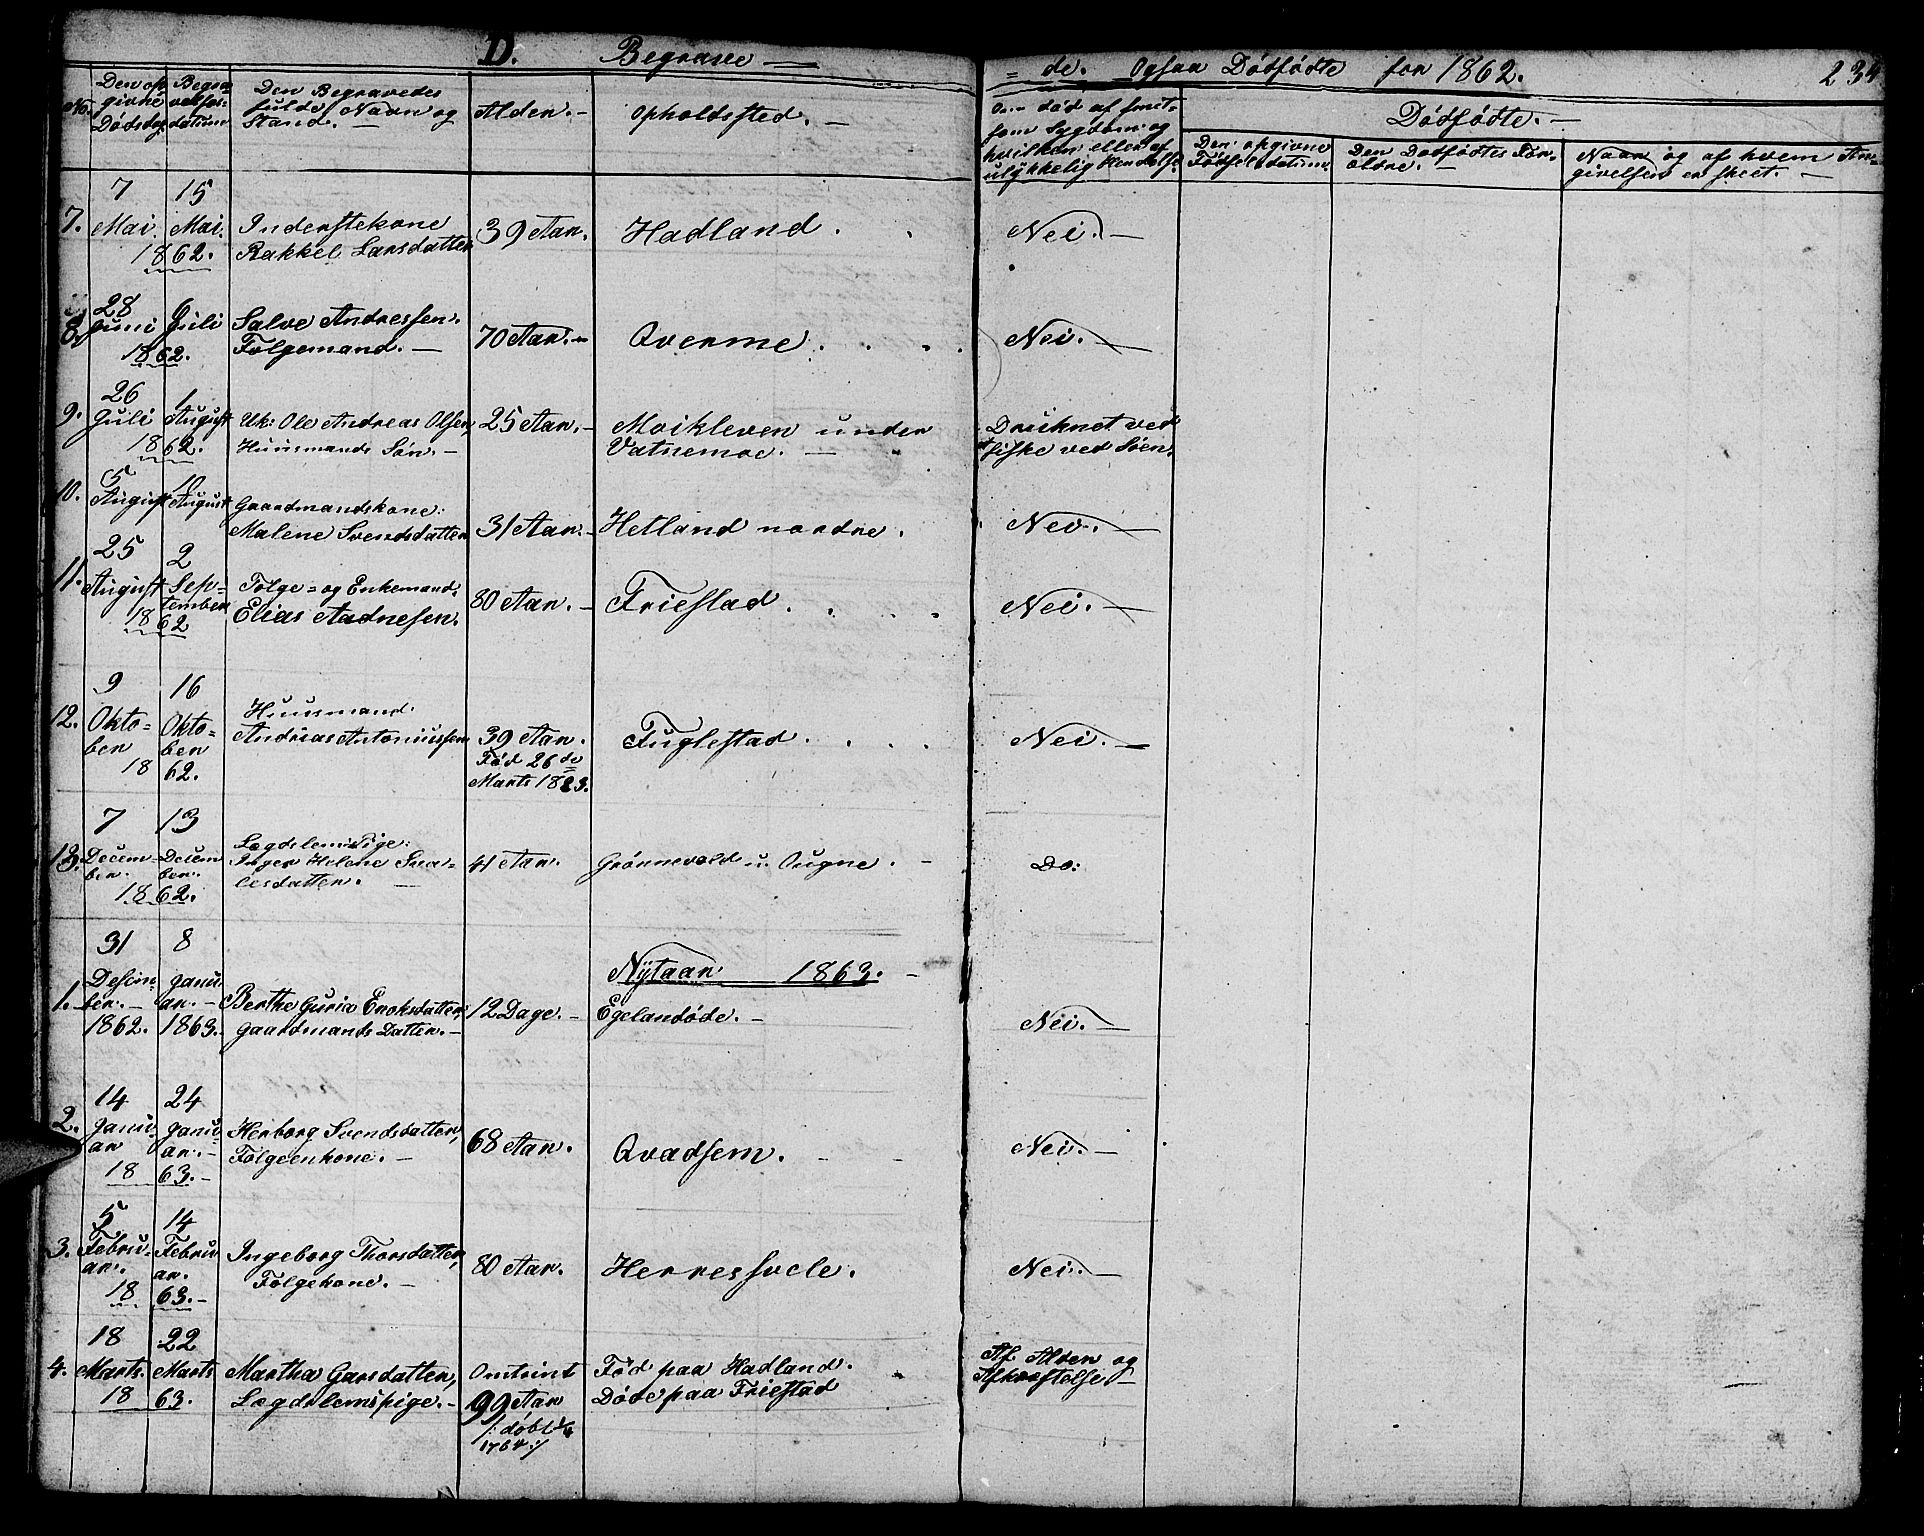 D. Begrave=
=de. Ogsaa Dødfødte for 1862. 234
No.
Den op
givne
Dødsdag
Begra
velses-
datum
Den Begravedes
fulde Navn og
Stand. —
Alder. —
Opholdssted. —
Om død af smit-
som Sygdom og
hvilken eller af
ulykkelig Hendelse.
Dødfødte. —
Den opgivne
Fødselsdatum.
Den Dødfødtes For-
ældre. —
Naar og af hvem An-
givelsen er skeet. —
7.
7
Mai
15
Mai.
1862.
Inderstekone
Rakkel Larsdatter
39 Aar.
Hadland.
Nei. —
8.
28
Juni
6
Juli
1862.
Salve Andressen.
Følgemand. —
70 Aar. —
Qverme.
Nei. —
9.
26
Juli
1
August
1862.
Uk: Ole Andreas Olsen,
Huusmands Søn. —
25 Aar. —
Moikleven under
Vatnemoe. —
Druknet ved
Fiske ved Søen.
10.
5
August
10
August
Gaardmandskone:
Malene Svendsdatter
31 Aar. —
Hetland nordre.
Nei. —
11.
25
August
2
Sep=
tember
1862
Følge= og Enkemand.
Elias Aadnesen.
80 Aar. —
Friestad.
Nei. —
12.
9
Okto=
ber
16
Okto=
ber
1862.
Huusmand.
Andreas Antoniussen
39 Aar.
Fød 26de
Marts 1823.
Fuglestad.
Nei. —
13.
7
Decem-
ber.
13
Decem
ber.
1862.
Lægdslemspige:
Inger Helene Sva=
lesdatter. —
41 Aar.
Grønnevold u. Ougne. —
Do.
31
Desem-
ber. —
1862.
8
Janu
ar. —
1863.
Nytaar 1863. —
1.
Berthe Guria Enoksdatter,
Gaardmands Datter. —
12 Dage. —
Egelandøde. —
Nei. —
2.
14
Janu-
ar
24
Janu-
ar. —
1863. —
Herborg Svendsdatter,
Følgeenkone. —
68 Aar.
Qvadsem.
Nei. —
3.
5
Febru-
ar.
14
Febru
ar.
1863. —
Ingeborg Thorsdatter,
Følgekone. —
80 Aar.
Herressvele.
Nei. —
4.
18
Marts.
22
Marts
1863.
Martha Garsdatter,
Lægdslemspige. —
Omtrint
99 Aar
/: døbt
1764 :/
Fød paa Hadland.
Døde paa Friestad
Af Alder og
Afkræftelse. —